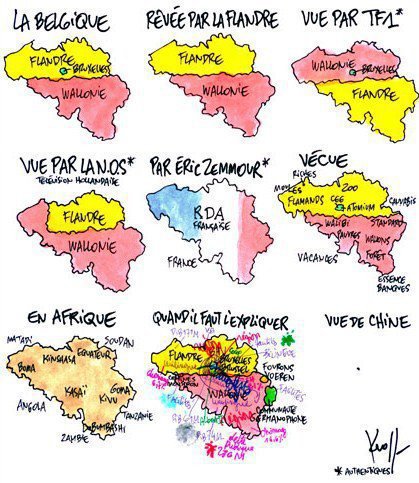 LA BELGIQUE
FLANDRE
BRUXELLES
WALLONIE
RÊVÉE PAR LA FLANDRE
FLANDRE
WALLONIE
VUE PAR TF1*
WALLONIE
BRUXELLES
FLANDRE
VUE PAR LA N.OS*
TÉLÉVISION HOLLANDAISE
FLANDRE
WALLONIE
PAR ÉRIC ZEMMOUR*
RDA
FRANÇAISE
FRANCE
VÉCUE
RICHES
MOULES
ZOO
FLAMANDS
CEE
ATOMIUM
CANNABIS
WALIBI
STANDARD
PAUVRES
WALLONS
VACANCES
FORÊT
ESSENCE
BANQUES
EN AFRIQUE
MATADI
SOUDAN
KINSHASA
EQUATEUR
BOMA
KASAÏ
GOMA
KIVU
ANGOLA
TANZANIE
LUBUMBASHI
ZAMBIE
QUAND IL FAUT L'EXPLIQUER
FLANDRE
BRUXELLES
BRUSSEL
BILINGUE
FOURONS
VOEREN
WALLONIE
COMMUNAUTÉ
GERMANOPHONE
VUE DE CHINE
Kroll
* AUTHENTIQUES